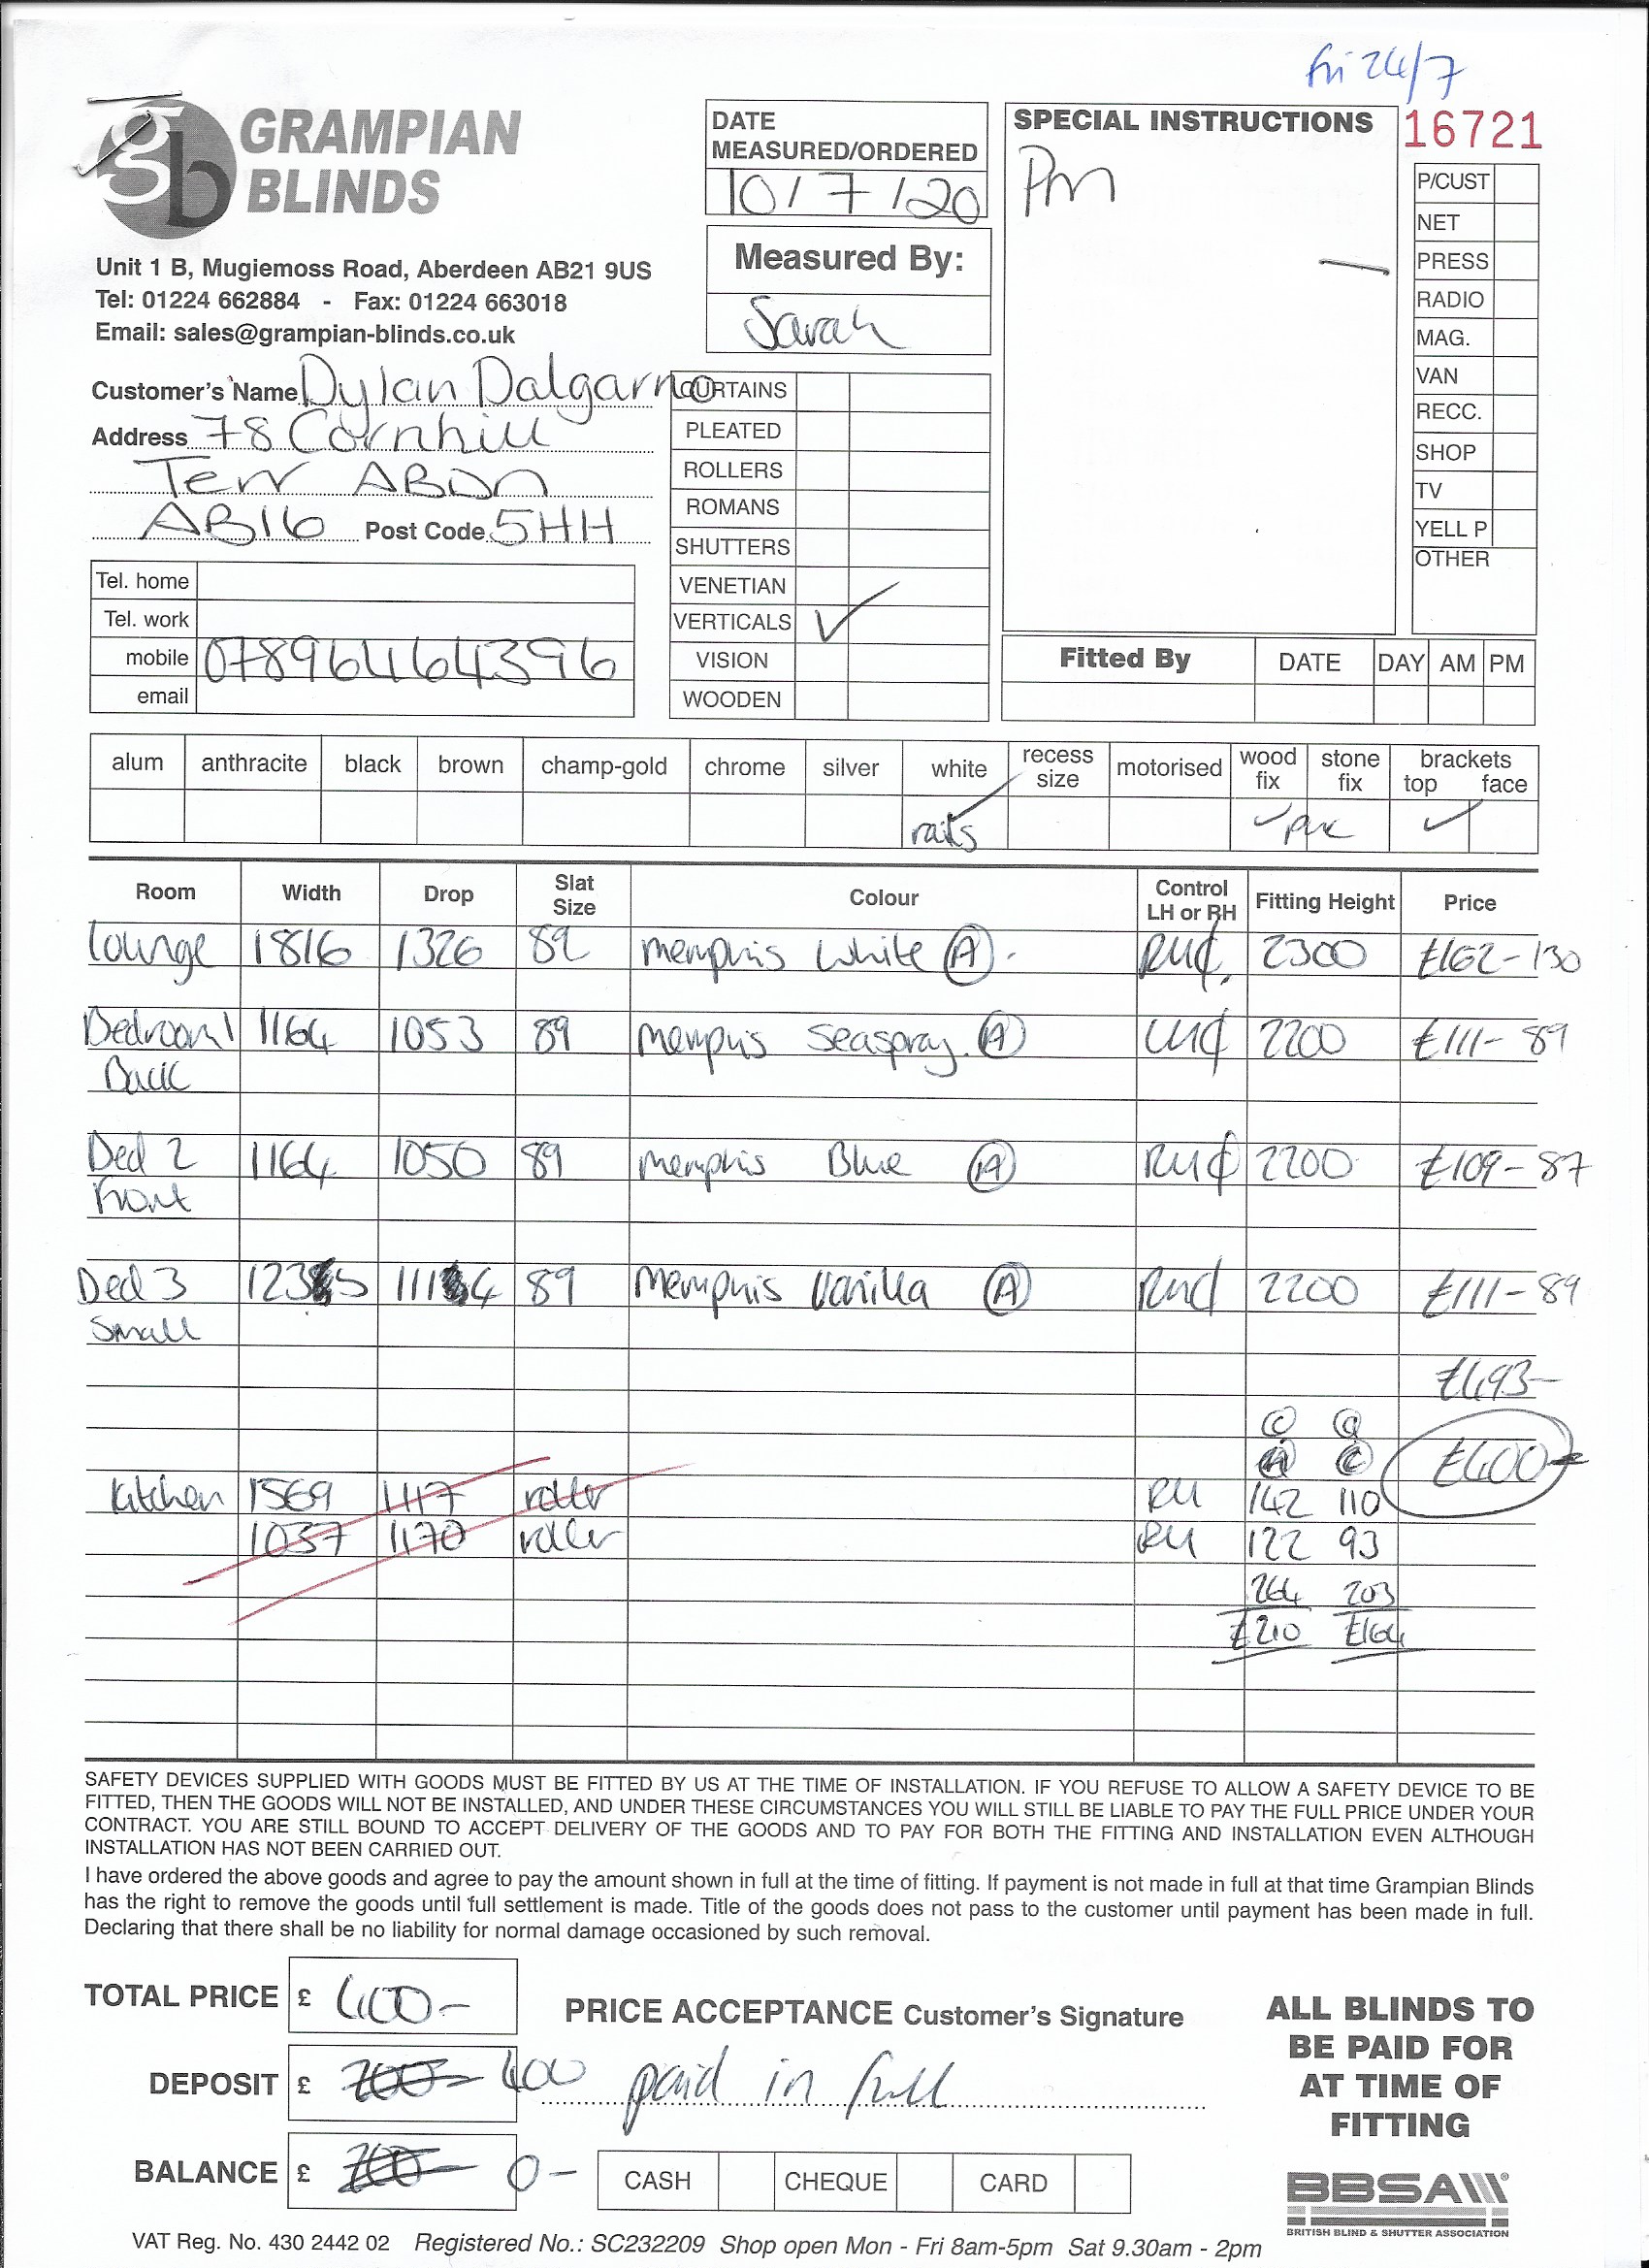 fri 24/7
gb GRAMPIAN BLINDS
Unit 1 B, Mugiemoss Road, Aberdeen AB21 9US
Tel: 01224 662884 - Fax: 01224 663018
Email: sales@grampian-blinds.co.uk
DATE MEASURED/ORDERED
10/7/20
Measured By:
Sarah
SPECIAL INSTRUCTIONS
Pm
16721
P/CUST
NET
PRESS
RADIO
MAG.
VAN
RECC.
SHOP
TV
YELL P
OTHER
Customer's Name Dylan Dalgarno
Address 78 Cornhill
Terr ABDN
AB16 Post Code 5HH
Tel. home
Tel. work
mobile 07896464396
email
CURTAINS
PLEATED
ROLLERS
ROMANS
SHUTTERS
VENETIAN
VERTICALS ✓
VISION
WOODEN
Fitted By DATE DAY AM PM
alum anthracite black brown champ-gold chrome silver white recess size motorised wood fix stone fix brackets top face
rails ✓ ✓ pvc ✓
Room Width Drop Slat Size Colour Control LH or RH Fitting Height Price
Lounge 1816 1326 89 Memphis White A RHC 2300 £162-130
Bedroom 1 1164 1053 89 Memphis Seaspray A LHC 2200 £111-89
Back
Bed 2 1164 1050 89 Memphis Blue A RHC 2200 £109-87
Front
Bed 3 1235 1114 89 Memphis Vanilla A RHC 2200 £111-89
Small
£493-
£400-
Kitchen 1569 1117 roller RH 142 110
1037 1170 roller RH 122 93
264 203
£210 £164
SAFETY DEVICES SUPPLIED WITH GOODS MUST BE FITTED BY US AT THE TIME OF INSTALLATION. IF YOU REFUSE TO ALLOW A SAFETY DEVICE TO BE
FITTED, THEN THE GOODS WILL NOT BE INSTALLED, AND UNDER THESE CIRCUMSTANCES YOU WILL STILL BE LIABLE TO PAY THE FULL PRICE UNDER YOUR
CONTRACT. YOU ARE STILL BOUND TO ACCEPT DELIVERY OF THE GOODS AND TO PAY FOR BOTH THE FITTING AND INSTALLATION EVEN ALTHOUGH
INSTALLATION HAS NOT BEEN CARRIED OUT.
I have ordered the above goods and agree to pay the amount shown in full at the time of fitting. If payment is not made in full at that time Grampian Blinds
has the right to remove the goods until full settlement is made. Title of the goods does not pass to the customer until payment has been made in full.
Declaring that there shall be no liability for normal damage occasioned by such removal.
TOTAL PRICE £ 400-
PRICE ACCEPTANCE Customer's Signature
DEPOSIT £ 200- 400 paid in full
BALANCE £ 200- 0-
CASH CHEQUE CARD
ALL BLINDS TO
BE PAID FOR
AT TIME OF
FITTING
BBSA
BRITISH BLIND & SHUTTER ASSOCIATION
VAT Reg. No. 430 2442 02 Registered No.: SC232209 Shop open Mon - Fri 8am-5pm Sat 9.30am - 2pm